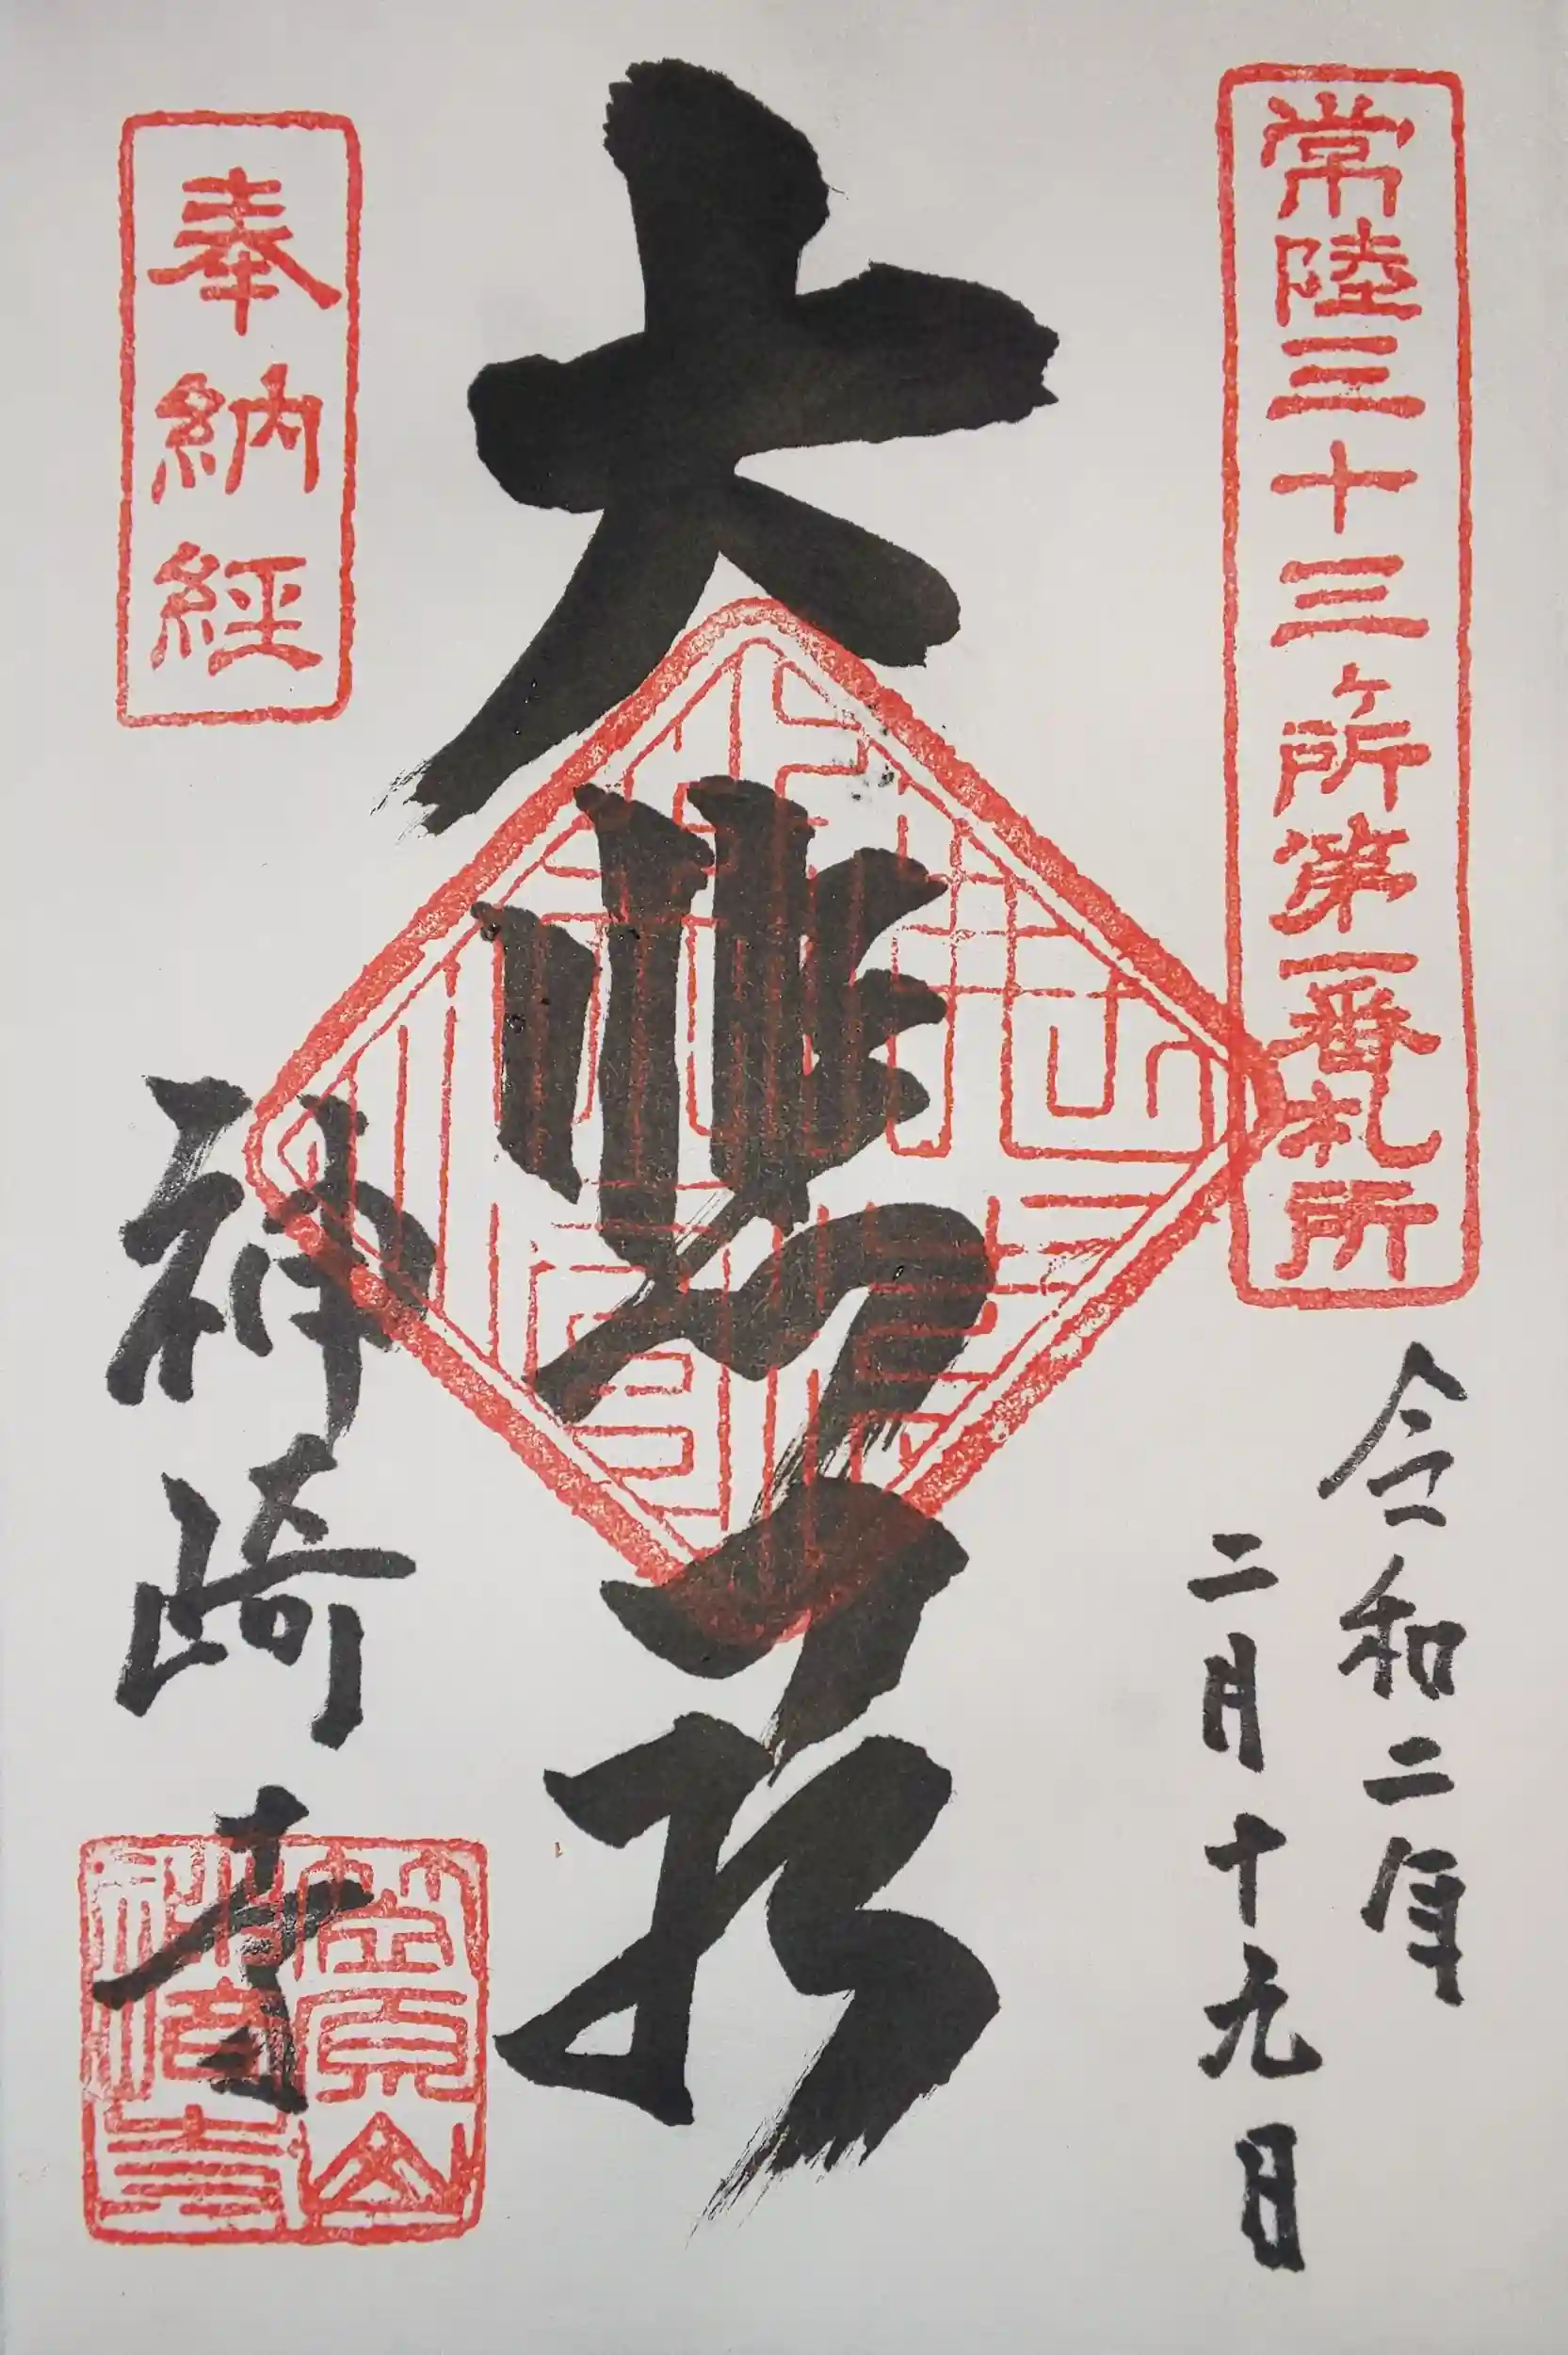 常陸三十三ヶ所第一番札所
令和二年
二月十九日
大悲
奉納経
神崎寺
笠原山
神崎寺